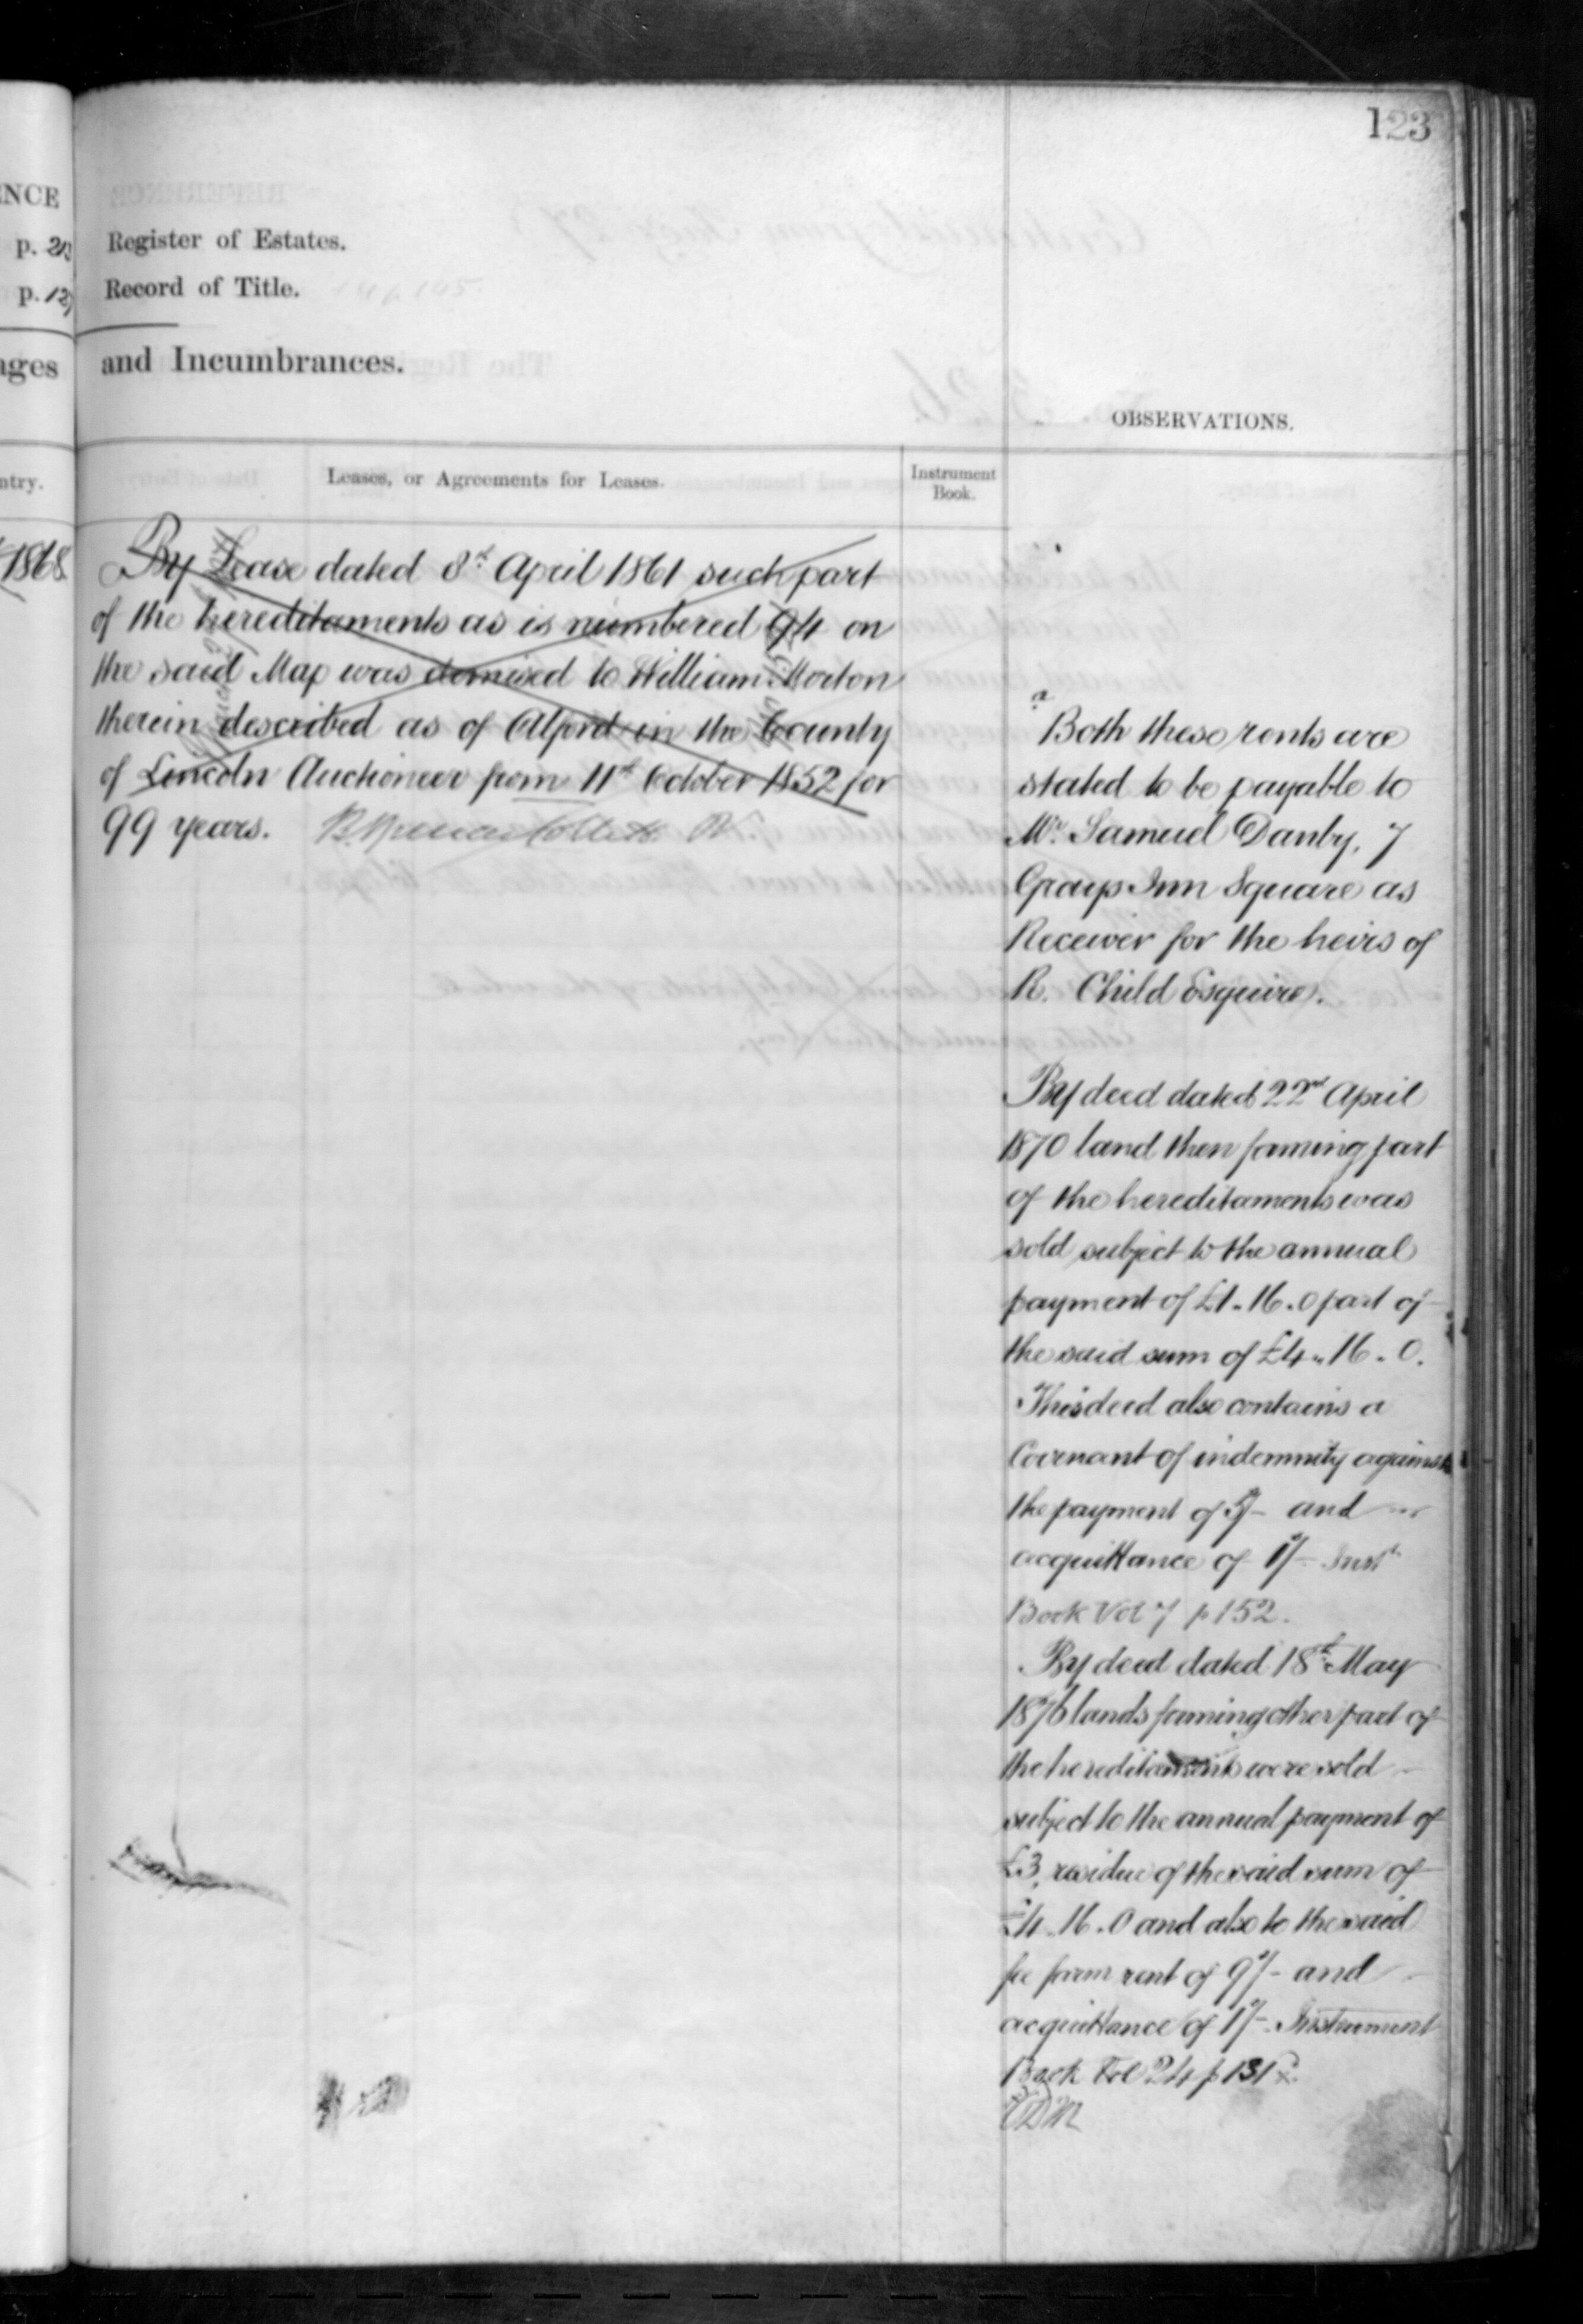 123
ENCE
p. 213
p. 12
ages
ntry.
1868
Register of Estates.
Record of Title.
and Incumbrances.
OBSERVATIONS.
Leases, or Agreements for Leases.
Instrument
Book.
By Lease dated 8th April 1861 such part
of the hereditaments as is numbered 94 on
the said Map was demised to William Morton
therein described as of Alford in the County
of Lincoln Auctioneer from 11th October 1852 for
99 years.
a
Both these rents are
stated to be payable to
Mr. Samuel Danby, 7
Grays Inn Square as
Receiver for the heirs of
R. Child Esquire.
By deed dated 22nd April
1870 land then forming part
of the hereditaments was
sold subject to the annual
payment of £1.16.0 part of
the said sum of £4.16.0.
This deed also contains a
Covenant of indemnity against
the payment of 9/- and
acquittance of 1/- Inst
Book Vol 7 p 152.
By deed dated 18th May
1876 lands forming other part of
the hereditaments were sold
subject to the annual payment of
£3, residue of the said sum of
£4.16.0 and also to the said
fee farm rent of 9/- and
acquittance of 1/-. Instrument
Book Vol 24 p 131